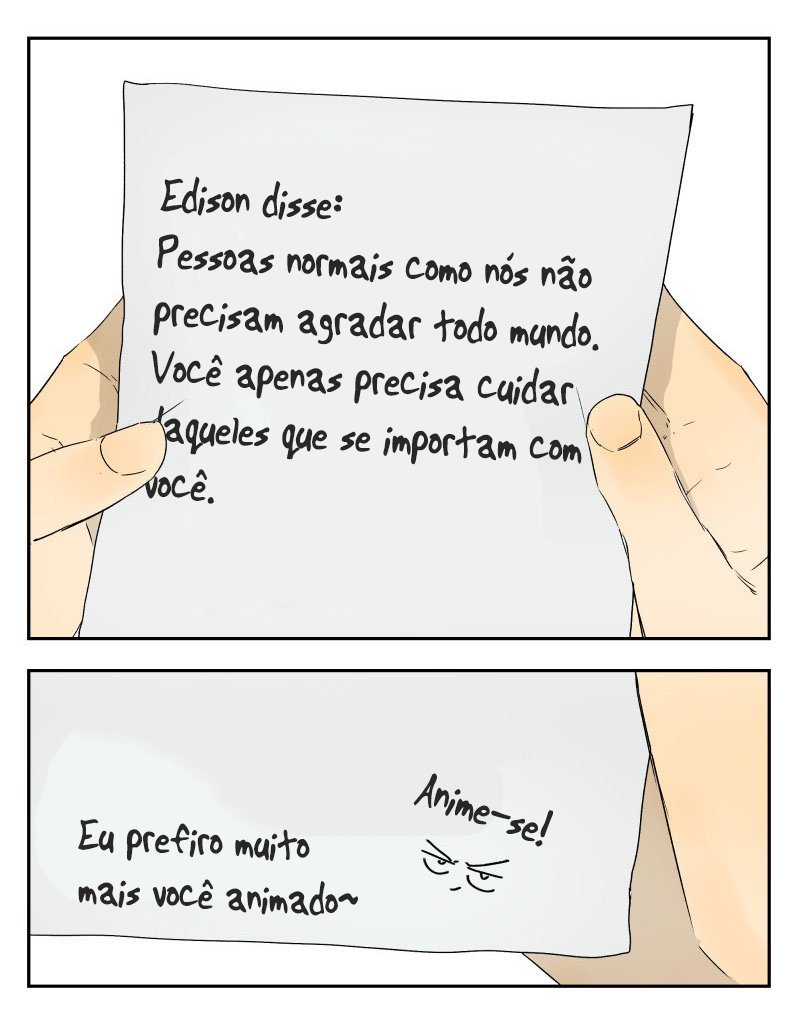 Edison disse:
Pessoas normais como nós não
precisam agradar todo mundo.
Você apenas precisa cuidar
daqueles que se importam com
você.
Anime-se!
Eu prefiro muito
mais você animado~